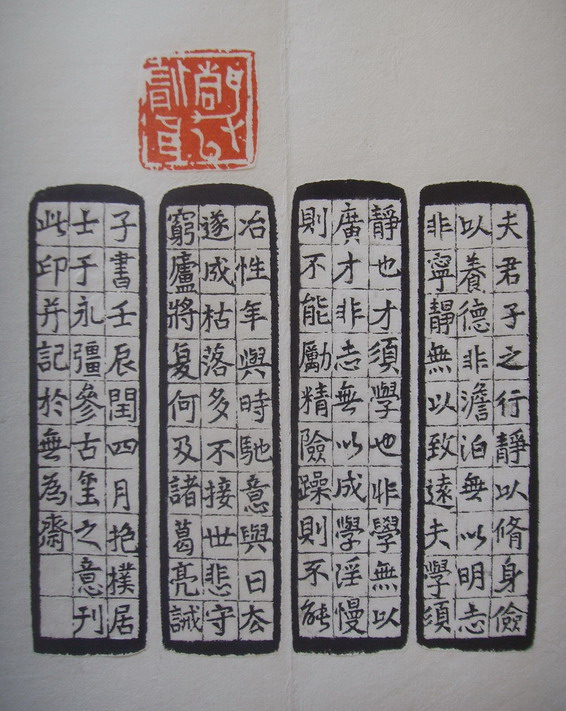 夫君子之行靜以脩身儉
以養德非澹泊無以明志
非寧靜無以致遠夫學須
靜也才須學也非學無以
廣才非志無以成學淫慢
則不能勵精險躁則不能
冶性年與時馳意與日去
遂成枯落多不接世悲守
窮廬將复何及諸葛亮誡
子書壬辰閏四月抱樸居
士于永彊參古玺之意刊
此印并記於無為齋